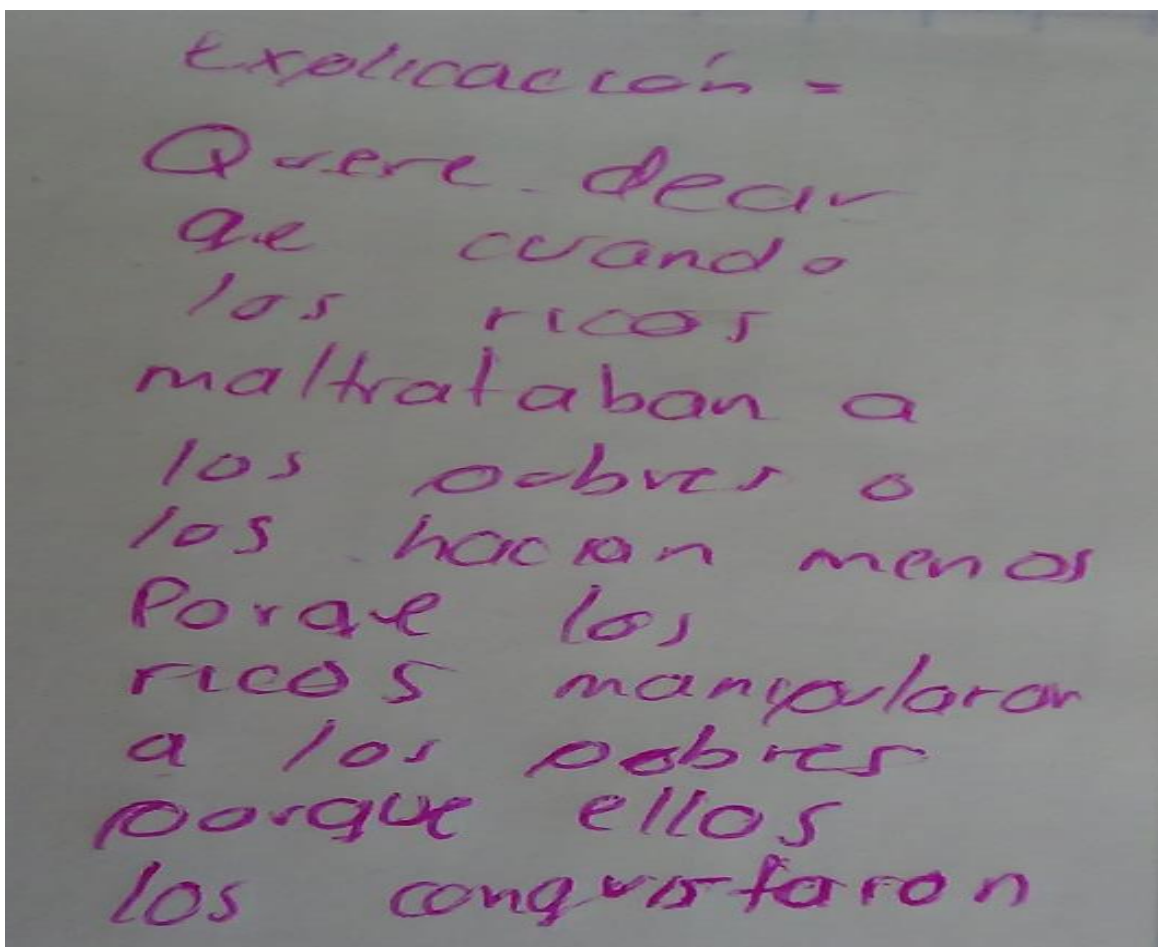 explicacción =
Quere decir
que cuando
los ricos
maltrataban a
los pobres o
los hacian menos
Porque los
ricos manipularon
a los pobres
porque ellos
los conquistaron